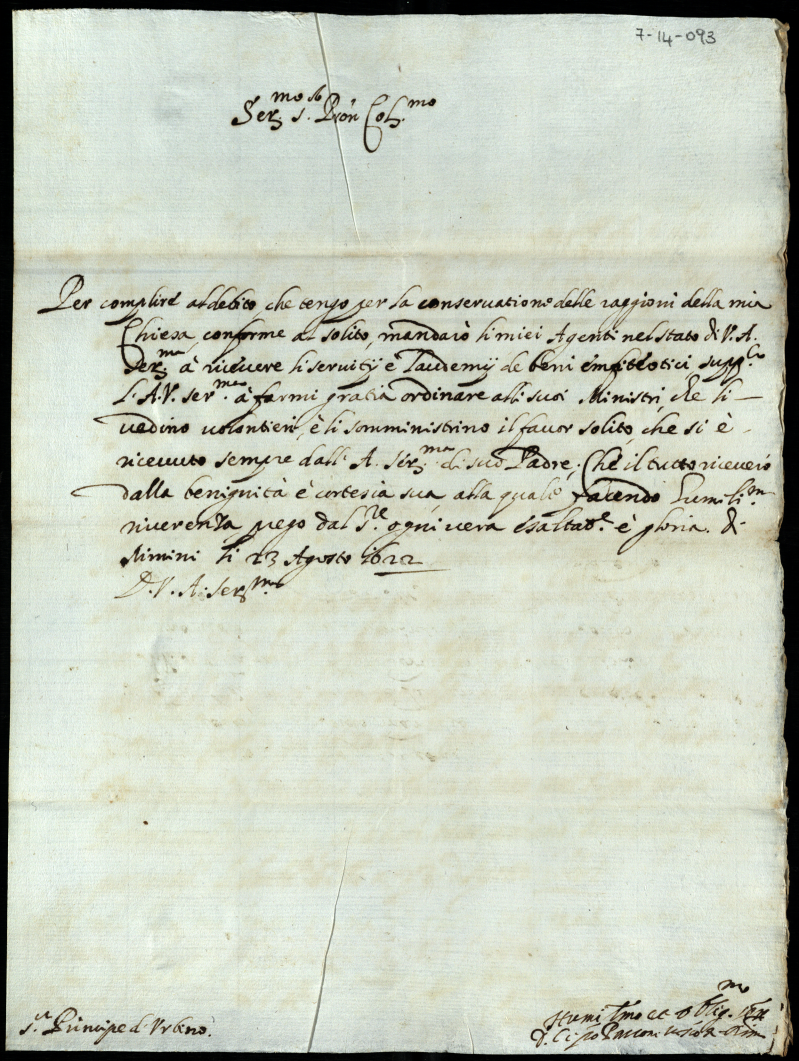 7-14-093
Ser.mo S.r Pron Col.mo
Per complire al debito che tengo per la conservatione delle raggioni della mia
Chiesa, conforme al solito, mandarò li miei Agenti nel stato di V. A.
Ser.ma à ricevere li servitij è Laudemij de beni emfiteotici, supp.co
L. A. V. Ser.ma à farmi gratia ordinare alli suoi Ministri, che li
vedino volontieri, è li somministrino il favor solito, che si è
ricevuto sempre dall' A. Ser.ma di suo Padre; Che il tutto riceverò
dalla benignità è cortesia sua, alla quale facendo humiliss.ma
riverenza prego dal S.re ogni vera esaltat.e è gloria. di
Rimini li 23 Agosto 1622
D. V. A. Ser.ma
S.r Principe d'Urbino.
Humiliss.mo et oblig.mo